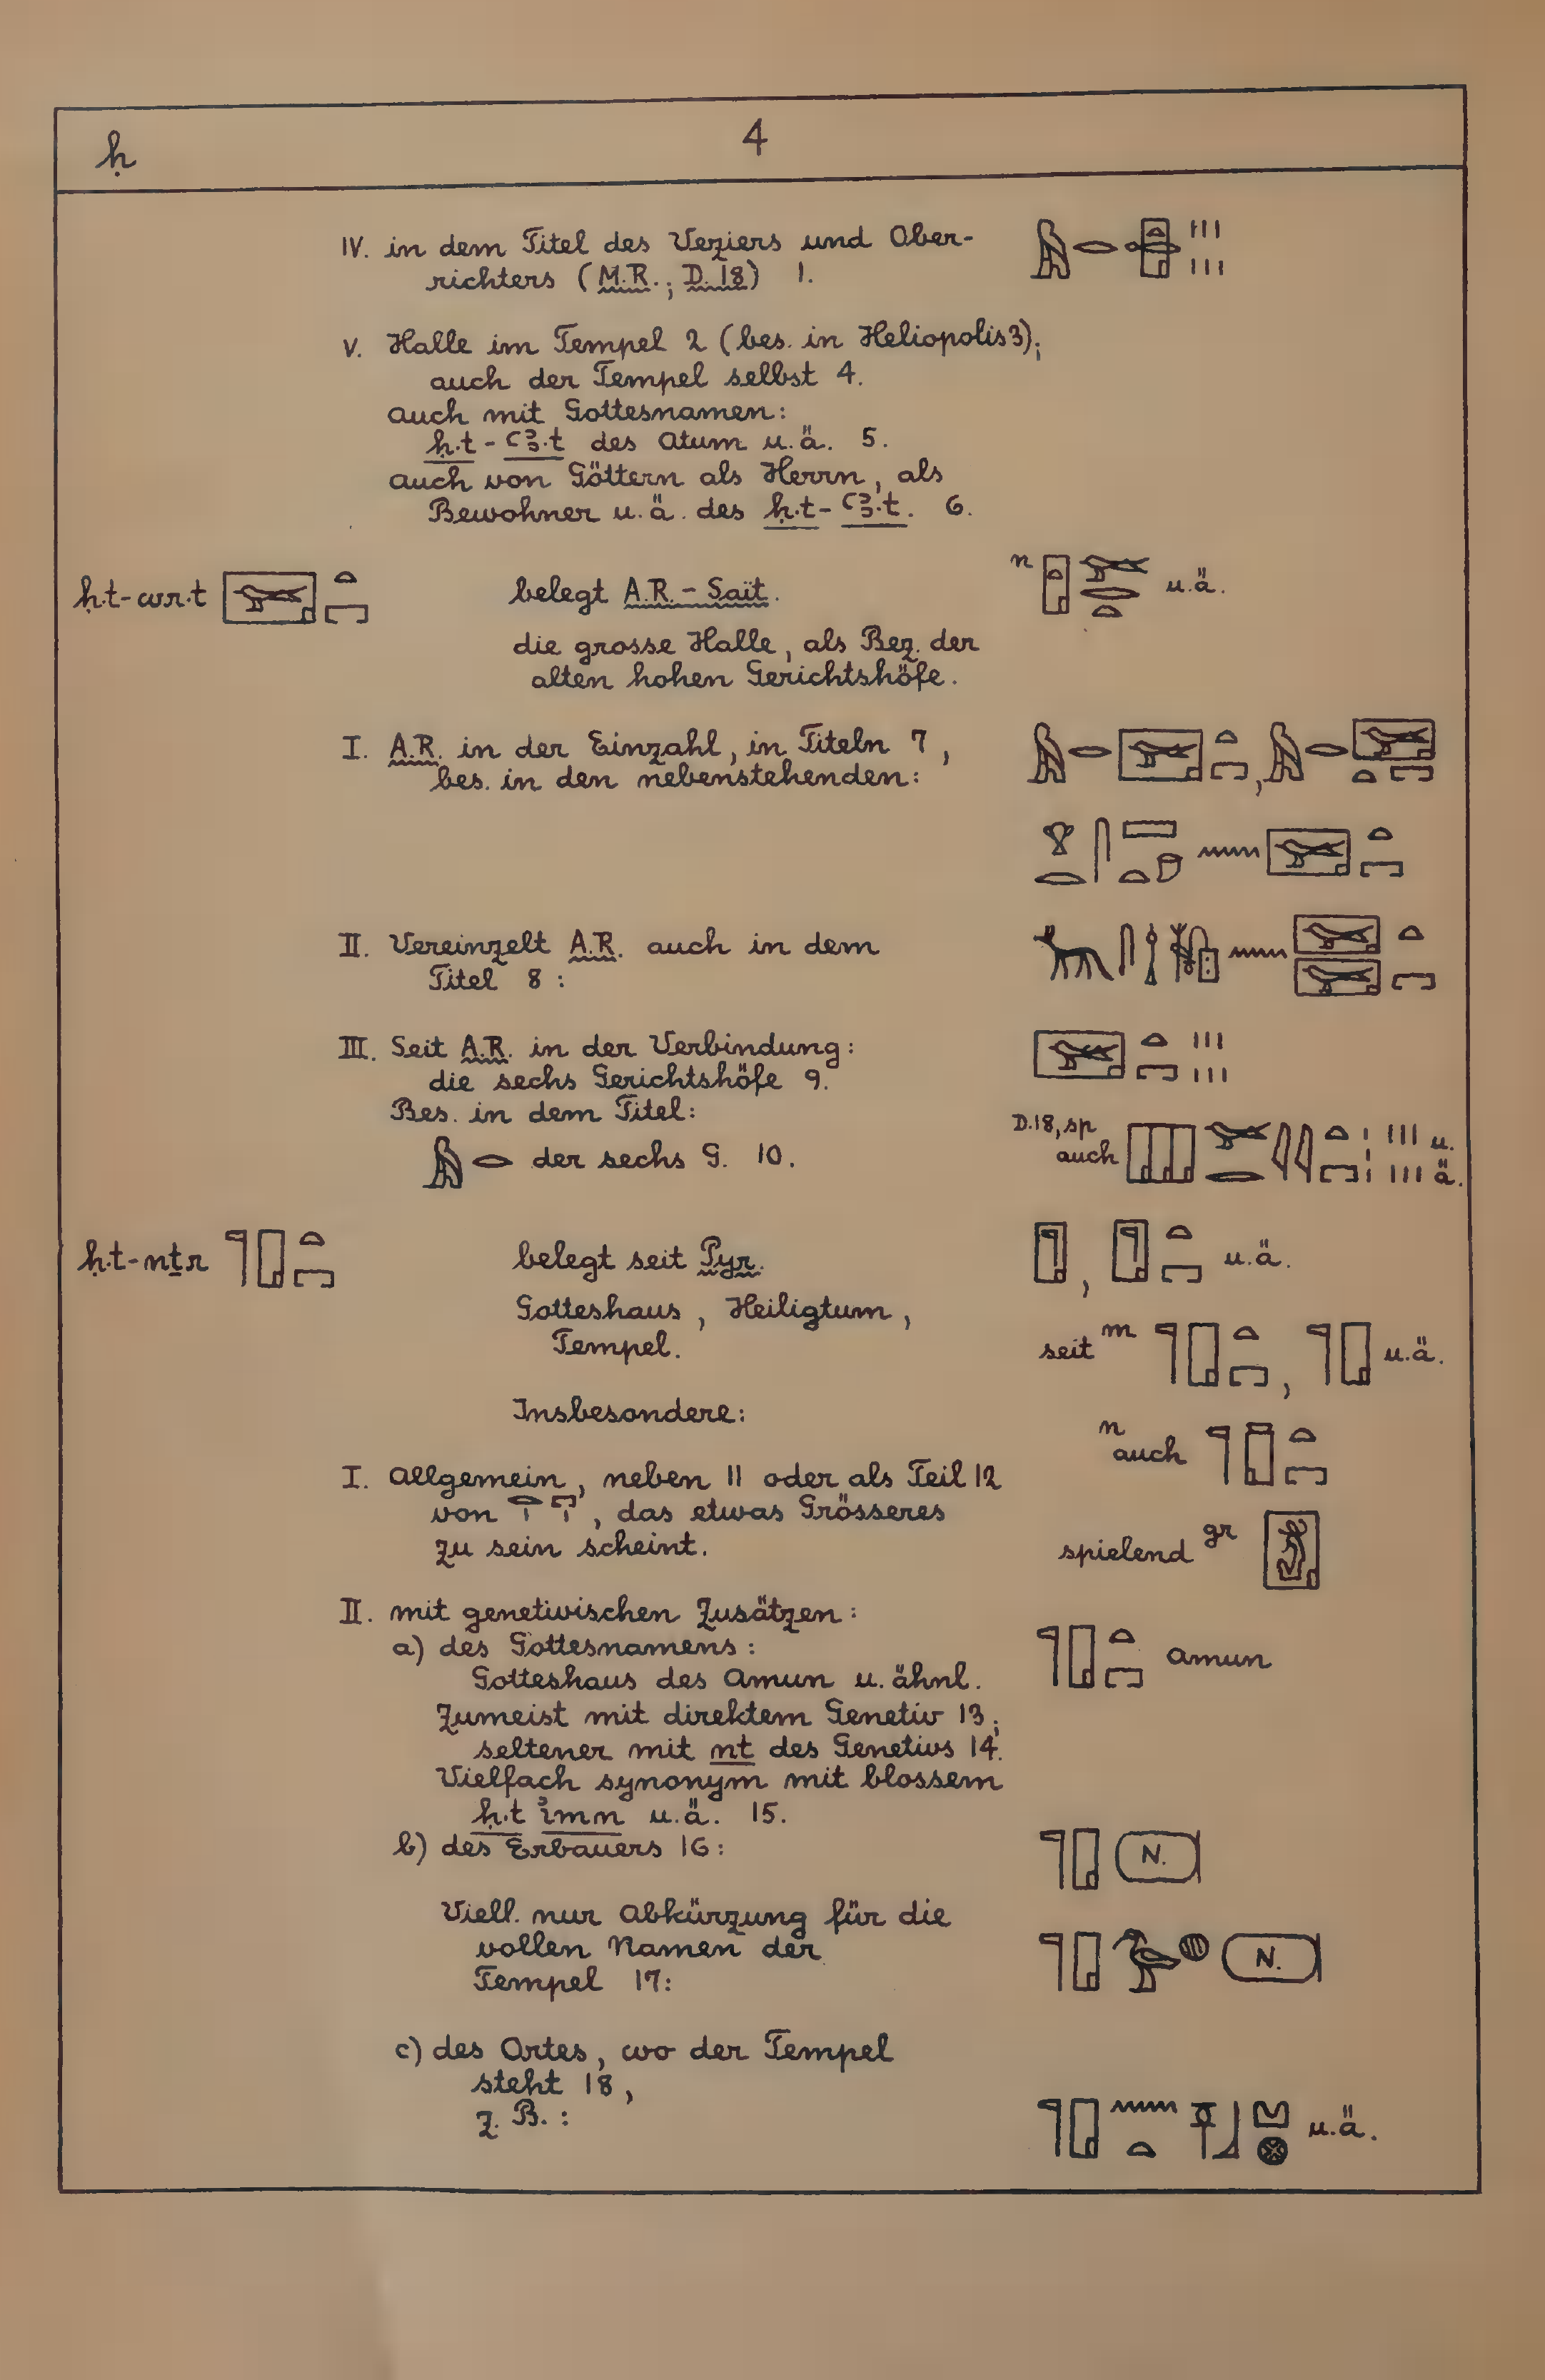 ḥ
4
IV. in dem Titel des Veziers und Ober-
richters (M.R.; D. 18) 1.
V. Halle im Tempel 2 (bes. in Heliopolis 3);
auch der Tempel selbst 4.
auch mit Gottesnamen:
ḥ.t-ꜥꜣ.t des Atum u.ä. 5.
auch von Göttern als Herrn, als
Bewohner u.ä. des ḥ.t-ꜥꜣ.t. 6.
ḥ.t-wr.t
belegt A.R.-Saït.
n u.ä.
die grosse Halle, als Bez. der
alten hohen Gerichtshöfe.
I. A.R. in der Einzahl, in Titeln 7,
bes. in den nebenstehenden:
II. Vereinzelt A.R. auch in dem
Titel 8:
III. Seit A.R. in der Verbindung:
die sechs Gerichtshöfe 9.
Bes. in dem Titel:
der sechs G. 10.
D.18, sp
auch u.
ä.
ḥ.t-nṯr
belegt seit Pyr.
, u.ä.
Gotteshaus, Heiligtum,
Tempel.
seit m , u.ä.
Insbesondere:
n
auch
I. Allgemein, neben 11 oder als Teil 12
von , das etwas Grösseres
zu sein scheint.
spielend gr
II. mit genetivischen Zusätzen:
a) des Gottesnamens:
Gotteshaus des Amun u. ähnl.
Amun
Zumeist mit direktem Genetiv 13;
seltener mit nt des Genetivs 14.
Vielfach synonym mit blossem
ḥ.t ỉmn u.ä. 15.
b) des Erbauers 16:
N.
Viell. nur Abkürzung für die
vollen Namen der
Tempel 17:
N.
c) des Ortes, wo der Tempel
steht 18,
z. B.:
u.ä.